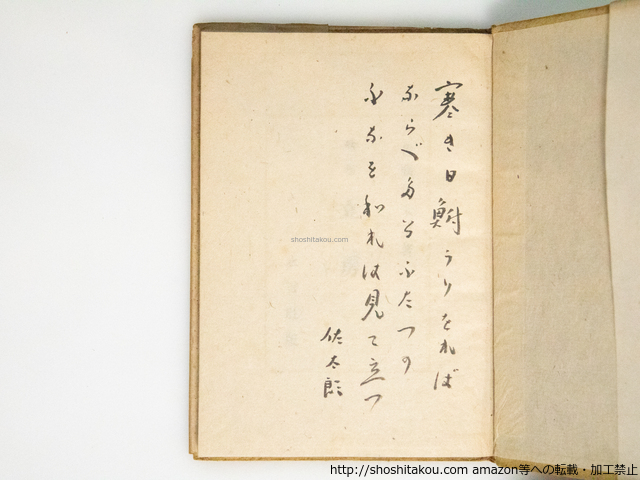 寒き日鮒うりをれば
ならべたるふたつの
ふなを和れは見て立つ
佐太郎
shoshitakou.com
http://shoshitakou.com amazon等への転載・加工禁止